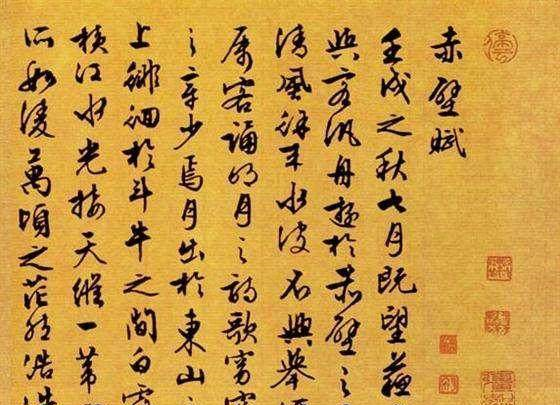 赤壁賦
壬戌之秋七月既望蘇
與客汎舟遊於赤壁之
清風徐来水波不興舉
屬客誦明月之詩歌窈
之章少焉月出於東山之
上徘徊於斗牛之間白露
橫江水光接天縱一葦
所如凌萬頃之茫然浩浩